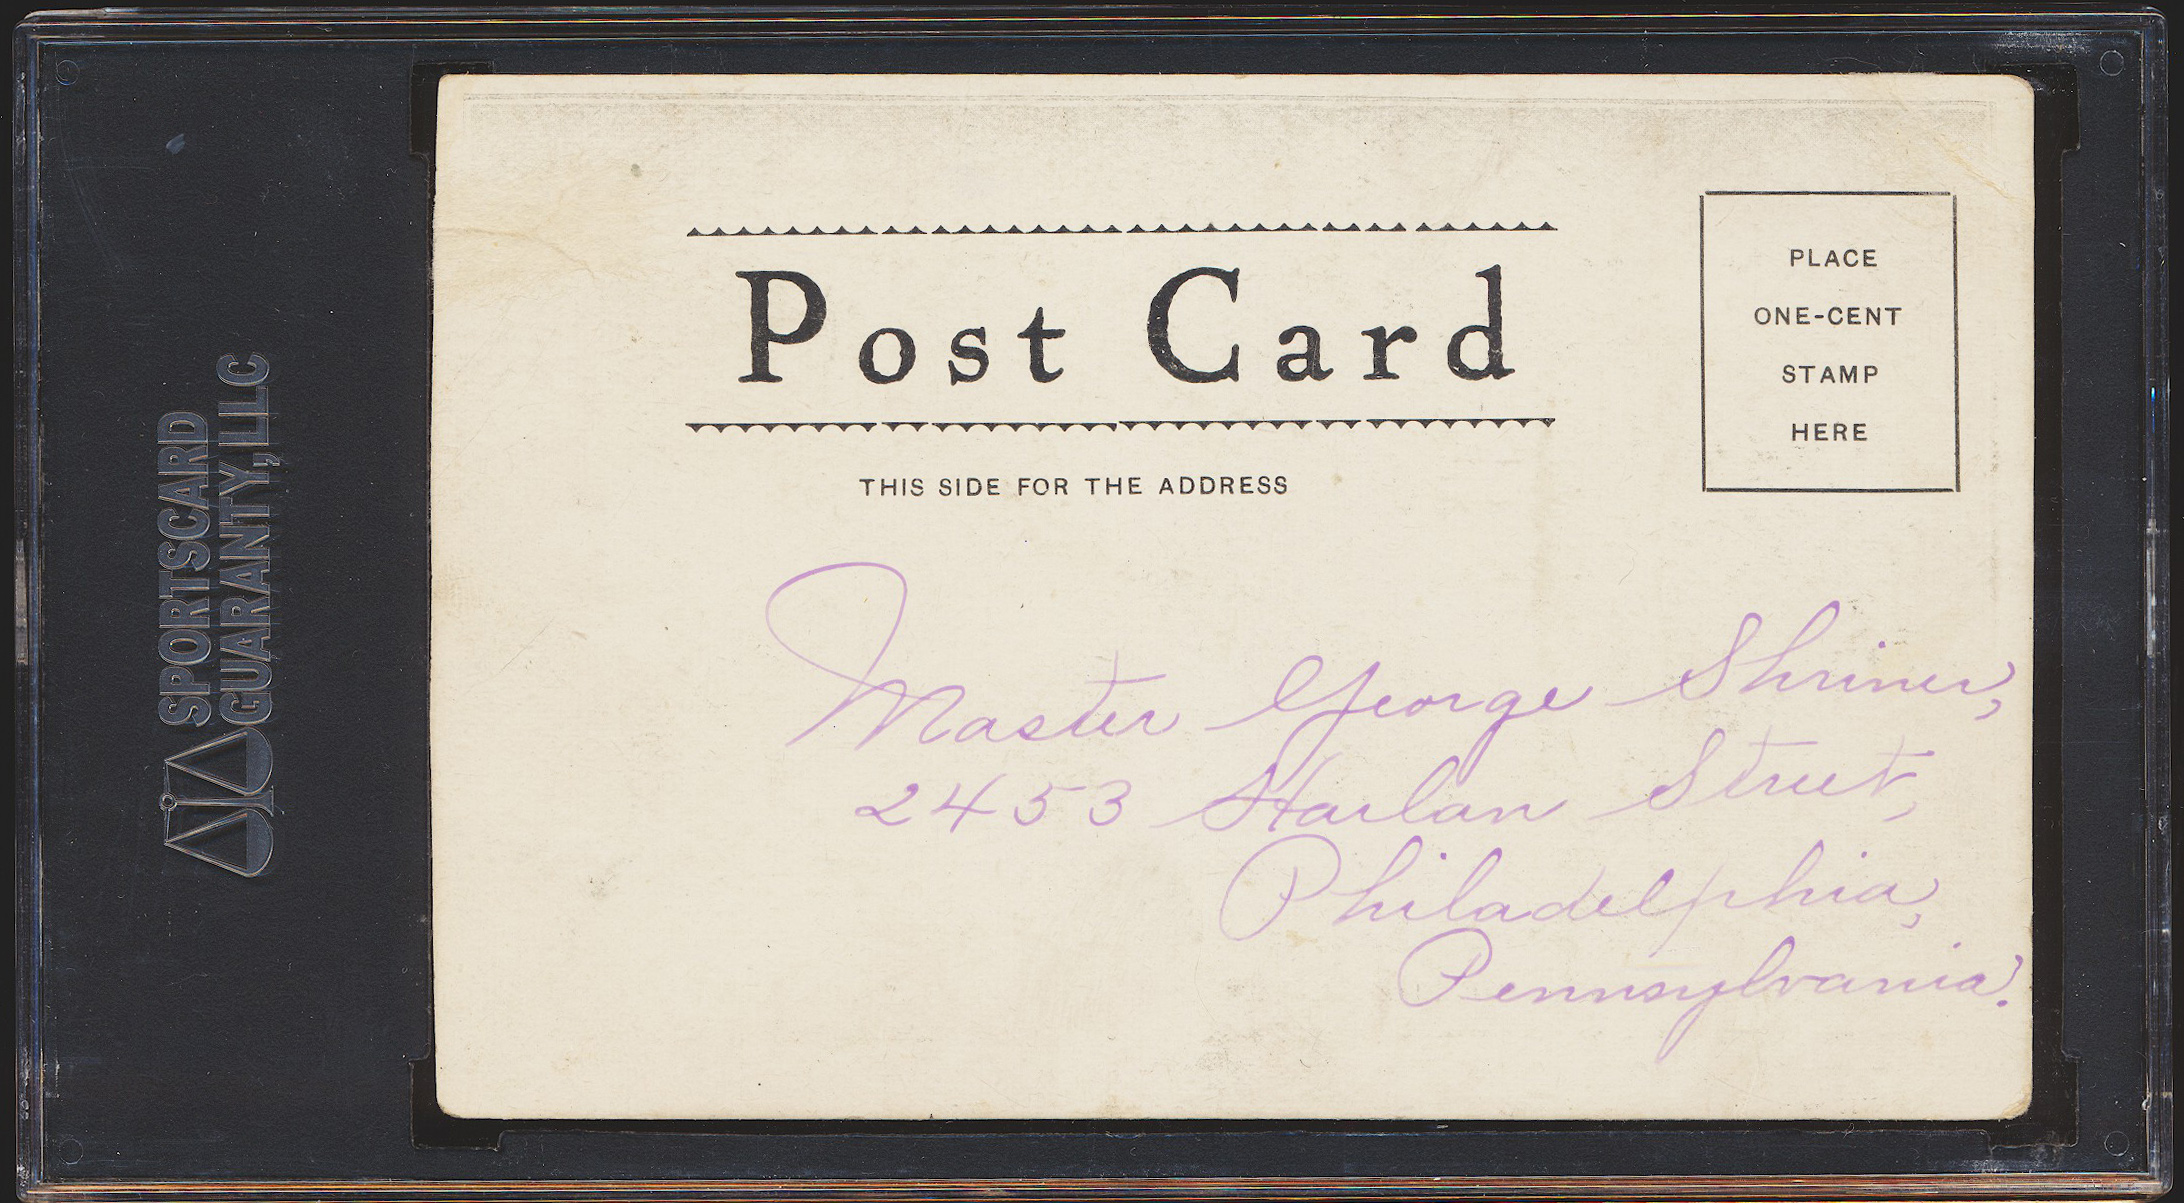 SPORTSCARD
GUARANTY, LLC
Post Card
THIS SIDE FOR THE ADDRESS
PLACE
ONE-CENT
STAMP
HERE
Master George Shriner,
2453 Harlan Street,
Philadelphia,
Pennsylvania.